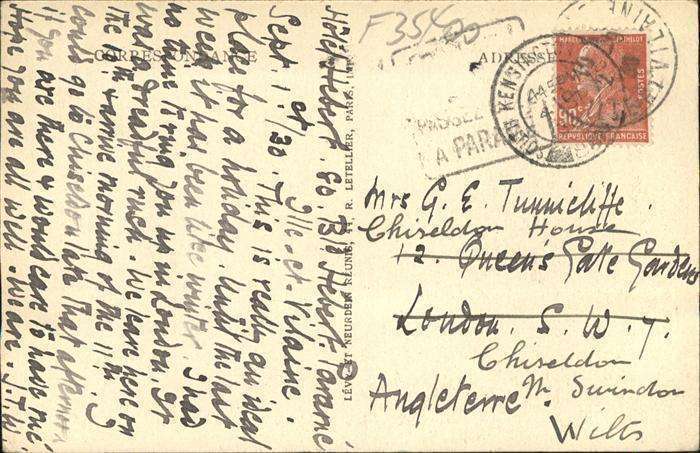 F 35400
CORRESPONDANCE
ADRESSE
Hôtel Hubert. Co. Bd Hubert. Paramé
Ille et Vilaine.
Sept. 1st /30. This is really an ideal
place for a holiday. Until the last
week it has been like winter. I had
no time to ring you us in London. It
was a dreadful rush. We leave here on
the evening morning of the 11th. I
could go to Chiseldon late that afternoon
if you are there & would care to have me.
Hope you are all well. We are. J.T.W.
LÉVY ET NEURDEIN RÉUNIS, R. LETELLIER, PARIS
SOUTH KENSINGTON
VILAINE
PASSEZ
A PARA
POSTES
90c
REPVBLIQVE FRANÇAISE
Mrs G. E. Tunnicliffe.
Chiseldon House
12. Queen's Gate Gardens
London. S. W. 7.
Chiseldon
Nr Swindon
Angleterre.
Wilts